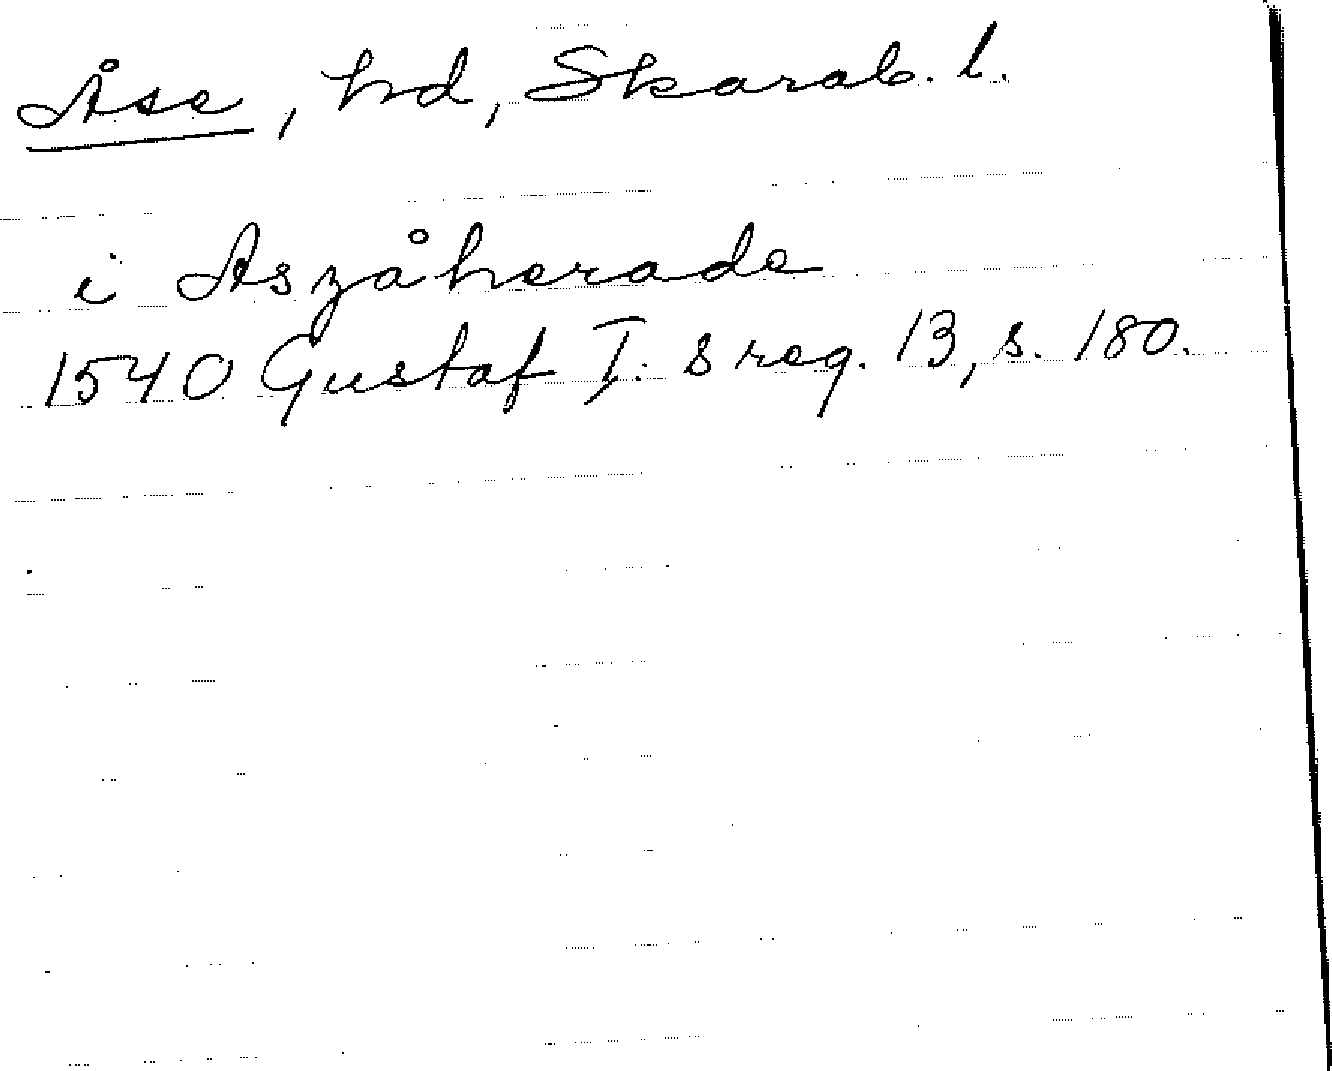 Åse, hd, Skarab. l.
i Aszåherade
1540 Gustaf I: s reg. 13, s. 180.